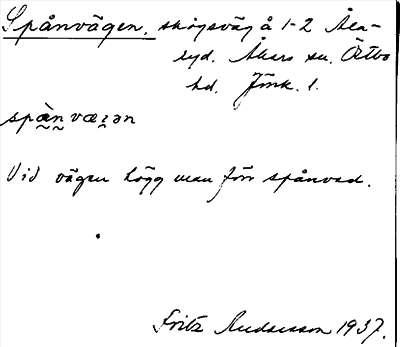 Spånvägen, skogsväg å 1-2 Åla-
ryd. Åkers sn. Östbo
hd. Jönk. l.
spàn væ̨ən
Vid vägen högg man förr spånved.
Fritz Andersson 1937.